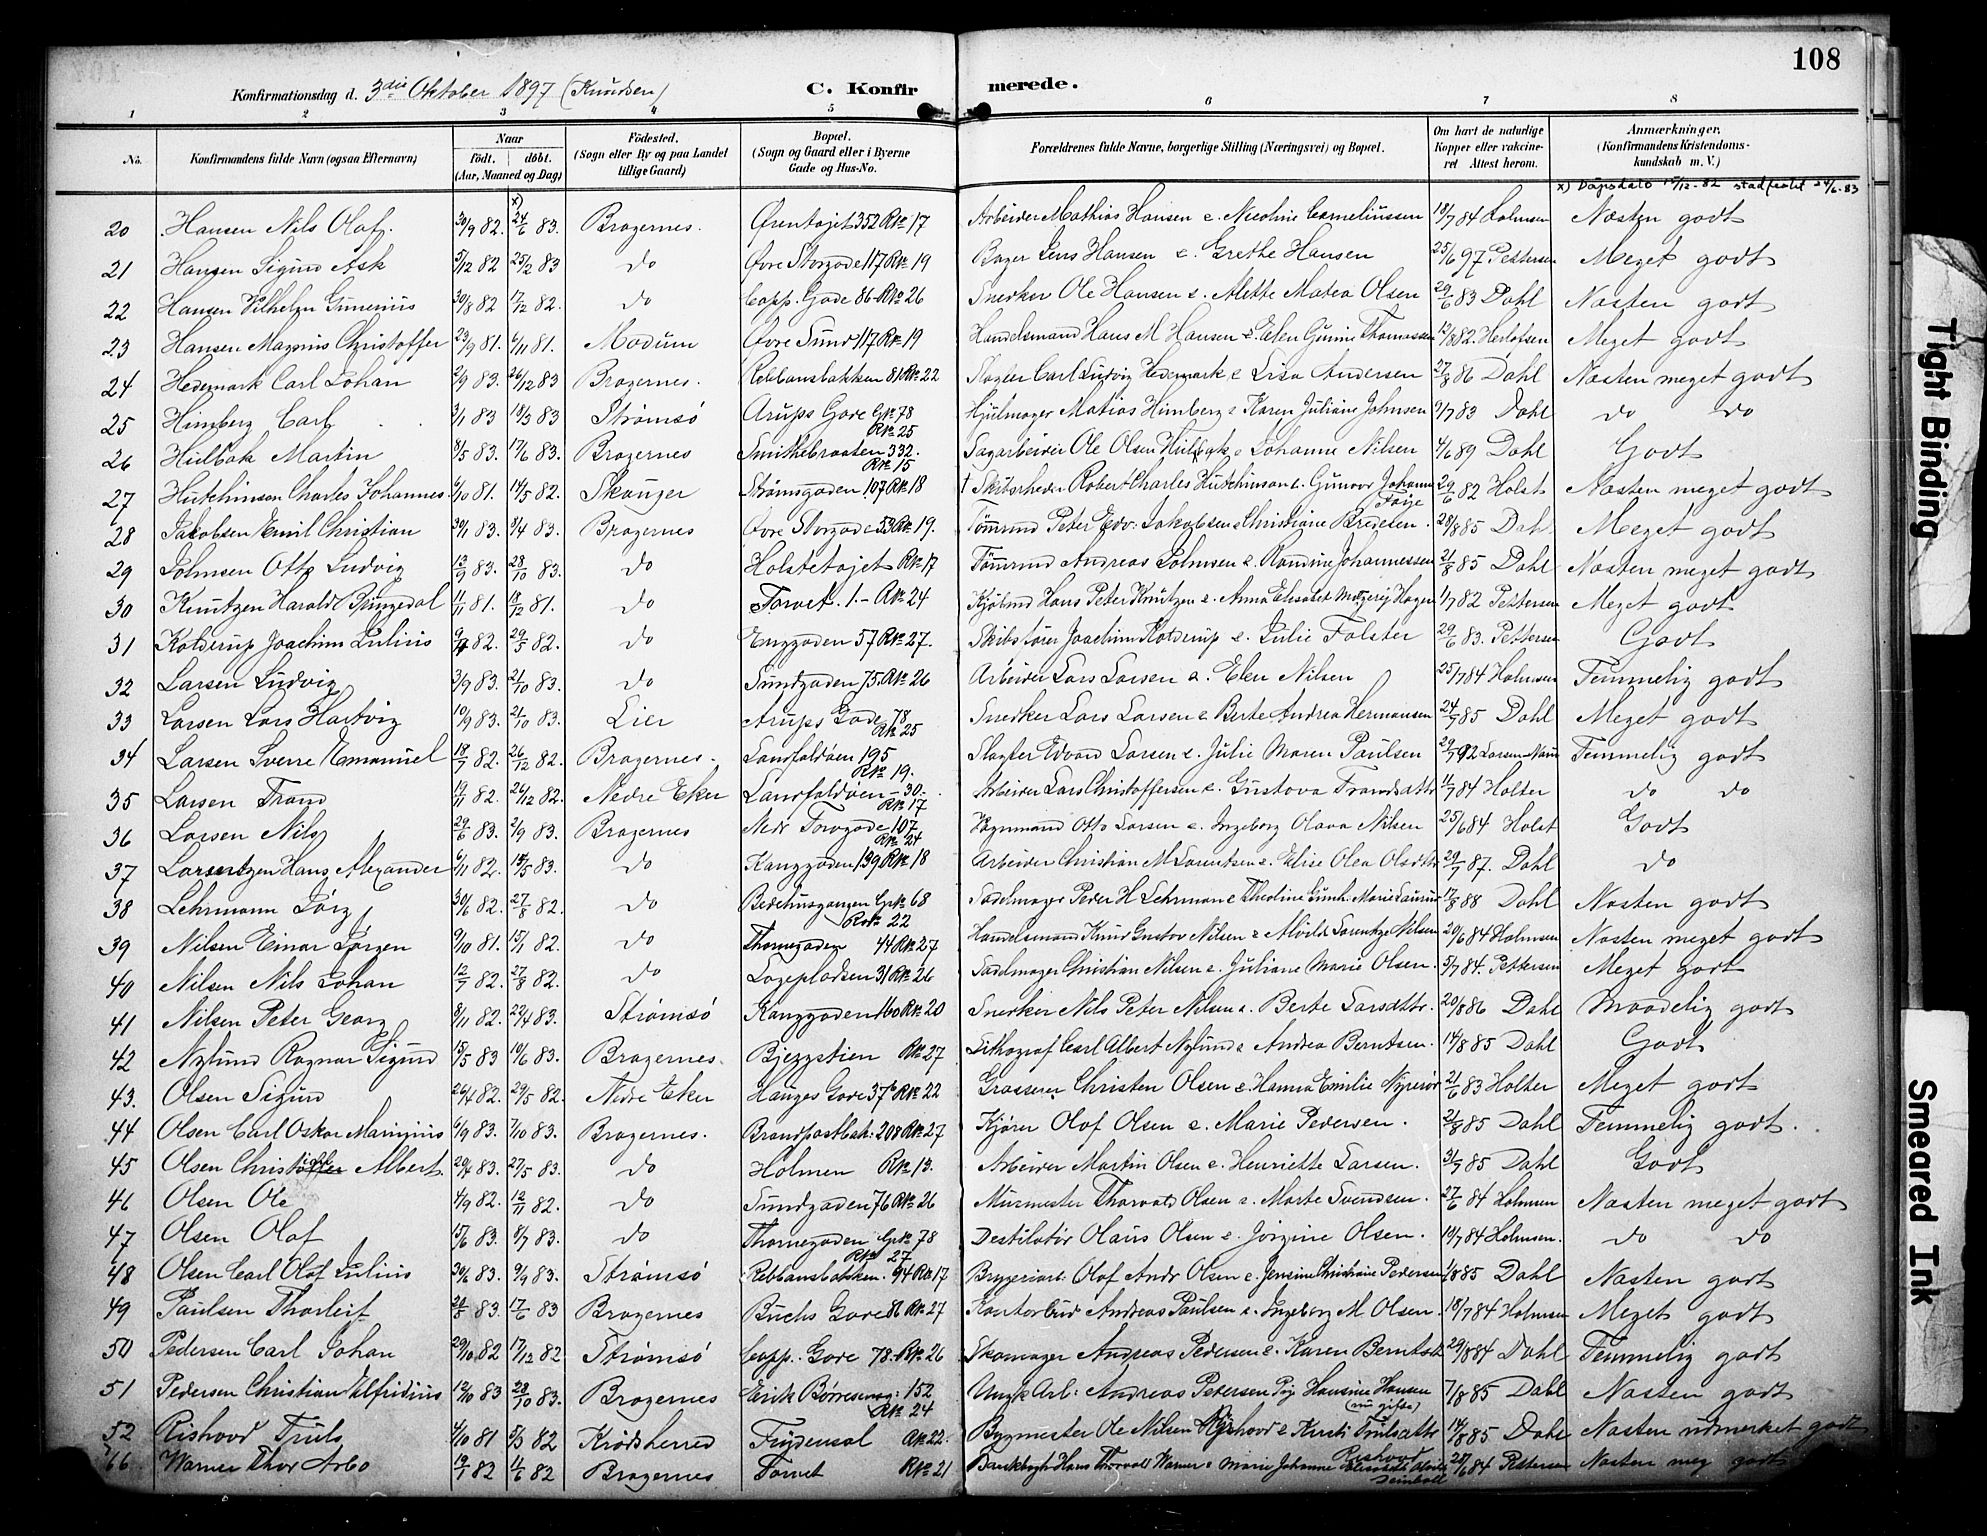 108
Konfirmationsdag d. 3die Oktober 1897 (Knudsen) C. Konfirmerede.
1 2 3 4 5 6 7 8
No. Konfirmandens fulde Navn (ogsaa Efternavn) Naar født. døbt. (Aar, Maaned og Dag) Fødested. (Sogn eller By og paa Landet tillige Gaard) Bopæl. (Sogn og Gaard eller i Byerne Gade og Hus-No. Forældrenes fulde Navne, borgerlige Stilling (Næringsvei) og Bopæl. Om havt de naturlige Kopper eller vaccineret Attest herom. Anmærkninger. (Konfirmandens Kristendomskundskab m. V.)
x) Daapsdato 17/12-82 stadfæstet 24/6-83
20 Hansen Nils Olaf. 30/9 82. x) 24/6 83. Bragernes. Ørentøjet 352 Rk 17 Arbeider Mathias Hansen & Nicoline Corneliussen 18/7 84 Holmsen Næsten godt
21 Hansen Sigurd Ask 5/12 82 25/2 83 do Øvre Storgade 117 Rk 19 Bager Jens Hansen & Grethe Hansen 25/6 97 Pettersen Meget godt
22 Hansen Vilhelm 30/8 82 17/12 82. do Capp. Gade 86 Rk 26 Snedker Ole Hansen & Alette Matea Olsen 29/6 83 Dahl Næsten godt
23 Hansen Magnus Christoffer 23/9 81. 6/11 81. Modum Øvre Sund 117 Rk 19 Handelsmand Hans M Hansen & Elen Gunine Thomassen 12/8 82. Meget godt
24 Hedemark Carl Johan 2/9 83. 26/12 83 Bragernes. Rebbansbakken 81 Rk 22 Slagter Carl Ludvig Hedemark & Lisa Andersen 27/8 86 Dahl Næsten meget godt
25 Himberg Carl 3/1 83 18/3 83 Strømsø Arups Gade Gk 78 Rk 25 Hjulmager Matias Himberg & Karen Juliane Johnsen 9/7 83 Dahl do do
26 Hulbak Martin 8/5 83. 17/6 83. Bragernes Smithebraaten 332. Rk 15 Sagarbeider Ole Olsen Hulbak & Johanne Nilsen 4/6 89 Dahl Godt
27 Hutchinson Charles Johannes 6/10 81. 14/5 82. Skauger Strømsgaden 107 Rk 18 † Skibsrheder Robert Charles Hutchinson & Gunvor Johanne Foije 29/6 82 Holst Næsten meget godt
28 Jakobsen Emil Christian 30/1 83. 8/4 83. Bragernes Øvre Storgade 53 Rk 19. Tømmd Peter Edv. Jakobsen & Christiane Bredesen. 28/8 85 Dahl Meget godt
29 Johnsen Otto Ludvig 13/9 83. 28/10 83. do Holstetøjet Rk 17 Tømmd Andreas Johnsen & Randine Johannessen 21/8 85 Dahl Næsten meget godt
30 Knutzen Harald Ringedal 11/11 81. 18/12 81. do Torvet. 1.- Rk 24 Kjøbmd Hans Peter Knutzen & Anna Elisabet Hagen 1/7 82 Pettersen Meget godt
31 Kolderup Joachim Julius 82. 29/5 82. do Enggaden 57 Rk 27. Skibsfører Joachim Kolderup & Julie Folster 29/6 83. Pettersen Godt
32 Larsen Ludvig 3/9 83. 21/10 83. do Sundgaden 75. Rk 26 Arbeider Lars Larsen & Elen Nilsen 25/7 84 Holmsen Temmelig godt
33 Larsen Lars Hartvig 10/9 83. 21/10 83. Lier Arups Gade 78 Rk 25 Snedker Lars Larsen & Berte Andrea Hermansen 24/7 85 Dahl Meget godt
34 Larsen Sverre Emanuel 18/7 82. 26/12 82. Bragernes. Landfaldøen 195 Rk 19. Slagter Edvard Larsen & Julie Maren Paulsen 29/7 92 Temmelig godt
35 Larsen Frans 19/11 82. 26/12 82. Nedre Eker Landfaldøen -30- Rk 17 Arbeider Lars Christoffersen & Gustava Frandsdttr 1/7 84 Holter do do
36 Larsen Nils 29/6 83. 2/9 83. Bragernes Nedr Torvgade 107 Rk 24 Vognmand Otto Larsen & Ingeborg Olava Nilsen 25/6 84 Holst Godt
37 Larsentzen Hans Alexander 6/11 82. 15/5 83. do Konggaden 139 Rk 18 Arbeider Christian M Larentsen & Elise Olea Olsdttr 29/7 87. Dahl do
38 Lehrmann Jörg 30/6 82. 27/8 82. do Bedehusgangen Gk 68 Rk 22 Sadelmager Peder H Lehrman & Theoline Gunh. Marie 17/8 88 Dahl Næsten godt
39 Nilsen Einar Jörgen 9/10 81. 15/1 82. do Thornegaden 44 Rk 27 Handelsmand Knud Gustav Nilsen & Alvilde Larentze Nilsen 20/6 84 Holmsen Næsten meget godt
40 Nilsen Nils Johan 12/7 82. 27/8 82. do Logepladsen 31 Rk 26 Sadelmager Christian Nilsen & Juliane Marie Olsen. 5/7 84. Pettersen Meget godt
41 Nilsen Peter Georg 8/11 82. 22/4 83. Strømsø Konggaden 160 Rk 20 Snedker Nils Peter Nilsen & Berte Larsdttr. 20/8 86 Dahl Maadelig godt
42 Nylund Ragnar Sigurd 18/5 83 10/6 83. Bragernes. Bjeggstien Rk 27 Lithograf Carl Albert Nylund & Andrea Berntsen. 14/8 85 Dahl Godt
43. Olsen Sigurd 26/4 82. 29/5 82. Nedre Eker Hauges Gade 376 Rk 22 Grasserer Christen Olsen & Hanna Emilie 21/6 83 Holter Meget godt
44 Olsen Carl Oskar Marinius 6/9 83. 7/10 83. Bragernes. Brandpostbak. 208 Rk 27 Kjører Olaf Olsen & Marie Pedersen. 21/8 85 Dahl Temmelig godt.
45 Olsen Christoffer Albert 20/4 83. 27/5 83. do Holmen Rk 13. Arbeider Martin Olsen & Henriette Larsen. 31/7 85 Dahl Godt
46 Olsen Ole 4/9 82. 12/11 82. do Sundgaden 76 Rk 26 Murmester Thorvald Olsen & Marte Svendsen. 27/6 84 Holmsen Næsten meget godt
47 Olsen Olaf 15/6 83. 8/7 83. do Thornegaden Gk 78 Rk 27 Destilatør Olaus Olsen & Jorgine Olsen. 10/7 84 Holmsen. do do
48 Olsen Carl Olaf Julius 30/6 83. 9/9 83. Strømsø Rebbansbakken. 94 Rk 17 Bryggeriarb. Olaf Andr Olsen & Jensine Christiane Pedersen 1/8 85 Dahl Næsten godt
49 Paulsen Thorleif 20/5 83. 17/6 83 Bragernes Buchs Gade 86 Rk 27 Kontorbud Andreas Paulsen & Ingeborg M. Olsen. 18/7 84 Holmsen Meget godt
50 Pedersen Carl Johan 29/10 82 17/12 82 Strømsø Capp. Gade 78. Rk 26 Skomager Andreas Pedersen & Karen Berntsdt 29/8 84 Dahl Temmelig godt
51 Pedersen Christian Alfridius 12/10 83 28/10 83. Bragernes Erik Børresensg: 152 Rk 24 Ungk Arb: Andreas Petersen Pig Hansine Hansen (nu gifte) 7/8 85 Dahl Næsten godt
52 Rishovd Truls 4/10 81 5/3 82 Krødsherred Frydensal Rk 22. Bygmester Ole Nilsen Rishovd & Kirsti Trulsdttr Rishovd 14/8 85 Dahl Næsten udmerket godt
66 Warner Thor Arbo 19/1 82 11/6 82 Bragernes Torvet Rk 21 Hans Thorvald Warner & Marie Johanne Elisabeth 27/6 84 Pettersen Næsten meg godt
Tight Binding
Smeared Ink